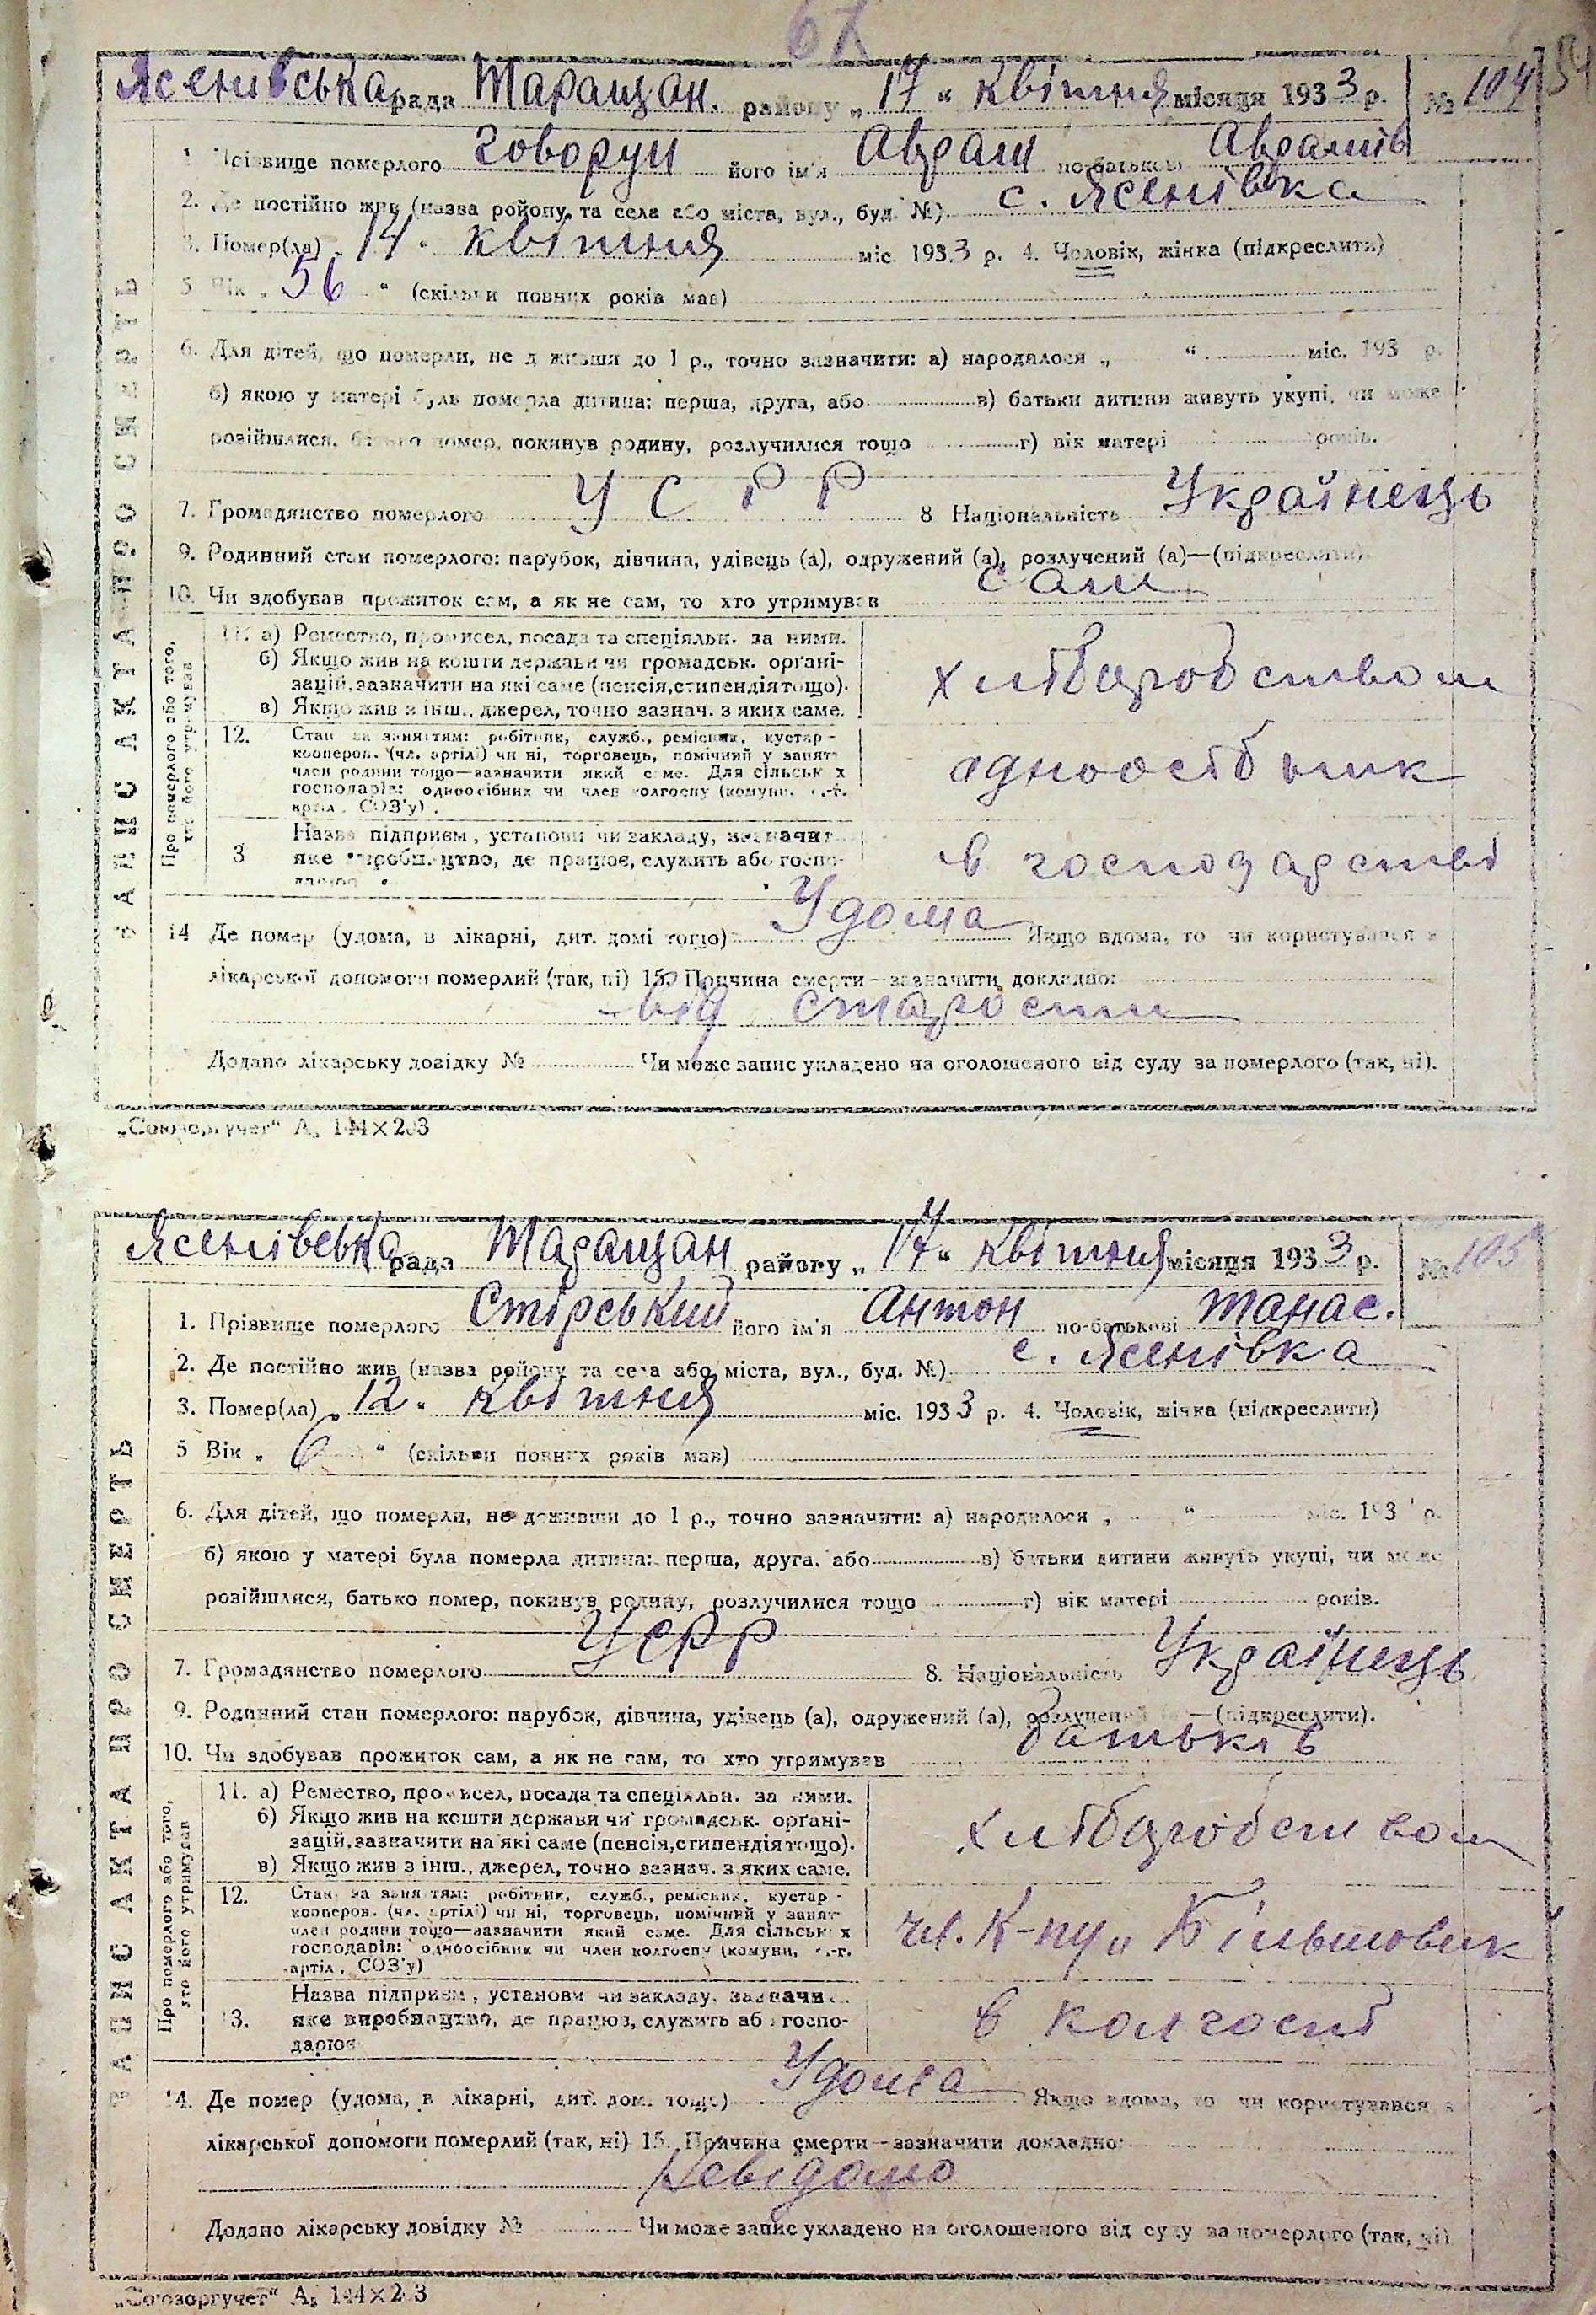 67
Ясенівська рада Таращан. району „ 17 “ квітня місяця 1933 р. № 104 54
1 Прізвище померлого Говорун його ім'я Аврам по-батькові Аврамів
2. Де постійно жив (назва району, та села або міста, вул., буд. №) с. Ясенівка
3. Помер(ла) „ 14 “ квітня міс. 1933 р. 4. Чоловік, жінка (підкреслити)
5 Вік „ 56 “ (скільки повних років мав)
6. Для дітей, що померли, не д живши до 1 р., точно зазначити: а) народилося „ “ міс. 193 р.
б) якою у матері була померла дитина: перша, друга, або в) батьки дитини живуть укупі, чи може
розійшлися, батько помер, покинув родину, розлучилися тощо г) вік матері років.
7. Громадянство померлого УСРР 8 Національність Українець
9. Родинний стан померлого: парубок, дівчина, удівець (а), одружений (а), розлучений (а)—(підкреслити)
10. Чи здобував прожиток сам, а як не сам, то хто утримував сам
ЗАПИС АКТА ПРО СМЕРТЬ
Про померлого або того, хто його утримував
11. а) Ремество, промисел, посада та спеціяльн. за ними.
б) Якщо жив на кошти держави чи громадськ. органі-
зацій, зазначити на які саме (пенсія, стипендія тощо).
в) Якщо жив з інш., джерел, точно зазнач. з яких саме.
хліборобством
12. Стан за заняттям: робітник, служб., ремісник, кустар -
кооперов. (чл. артілі) чи ні, торговець, помічний у занят
член родини тощо—зазначити який саме. Для сільськ х
господарів: одноосібник чи член колгоспу (комуни, с.-г.
артіл , СОЗ'у) .
одноосібник
3 Назва підприєм , установи чи закладу, зазначит
яке виробництво, де працює, служить або госпо-
дарює .
в господарстві
14 Де помер (удома, в лікарні, дит. домі тощо) Удома Якщо вдома, то чи користувався з
лікарської допомоги померлий (так, ні) 15. Причина смерти—зазначити докладно:
від старости
Додано лікарську довідку № Чи може запис укладено на оголошеного від суду за померлого (так, ні).
„Союзоргучет“ А₅ 144×203
Ясенівська рада Таращан району „ 17 “ квітня місяця 1933 р. № 105
1. Прізвище померлого Стірський його ім'я Антон по-батькові Танас.
2. Де постійно жив (назва району та села або міста, вул., буд. №) с. Ясенівка
3. Помер(ла) „ 12 “ квітня міс. 1933 р. 4. Чоловік, жінка (підкреслити)
5 Вік „ 6 “ (скільки повних років мав)
6. Для дітей, що померли, не доживши до 1 р., точно зазначити: а) народилося „ “ міс. 193 р.
б) якою у матері була померла дитина: перша, друга, або в) батьки дитини живуть укупі, чи може
розійшлися, батько помер, покинув родину, розлучилися тощо г) вік матері років.
7. Громадянство померлого УСРР 8. Національність Українець
9. Родинний стан померлого: парубок, дівчина, удівець (а), одружений (а), розлучений — (підкреслити).
10. Чи здобував прожиток сам, а як не сам, то хто утримував батьків
ЗАПИС АКТА ПРО СМЕРТЬ
Про померлого або того, хто його утримував
11. а) Ремество, промисел, посада та спеціяльн. за ними.
б) Якщо жив на кошти держави чи громадськ. органі-
зацій, зазначити на які саме (пенсія, стипендія тощо).
в) Якщо жив з інш., джерел, точно зазнач. з яких саме.
хліборобством
12. Стан за заняттям: робітник, служб., ремісник, кустар -
кооперов. (чл. артілі) чи ні, торговець, помічний у занят
член родини тощо—зазначити який саме. Для сільськ х
господарів: одноосібник чи член колгоспу (комуни, с.-г.
артіл , СОЗ'у)
чл. К-пу „ Більшовик
3. Назва підприєм , установи чи закладу, зазначи
яке виробництво, де працює, служить або госпо-
дарює
в колгоспі
14. Де помер (удома, в лікарні, дит. домі тощо) Удома Якщо вдома, то чи користувався з
лікарської допомоги померлий (так, ні) 15. Причина смерти—зазначити докладно:
Невідомо
Додано лікарську довідку № Чи може запис укладено на оголошеного від суду за померлого (так, ні)
„Союзоргучет“ А₅ 144×203